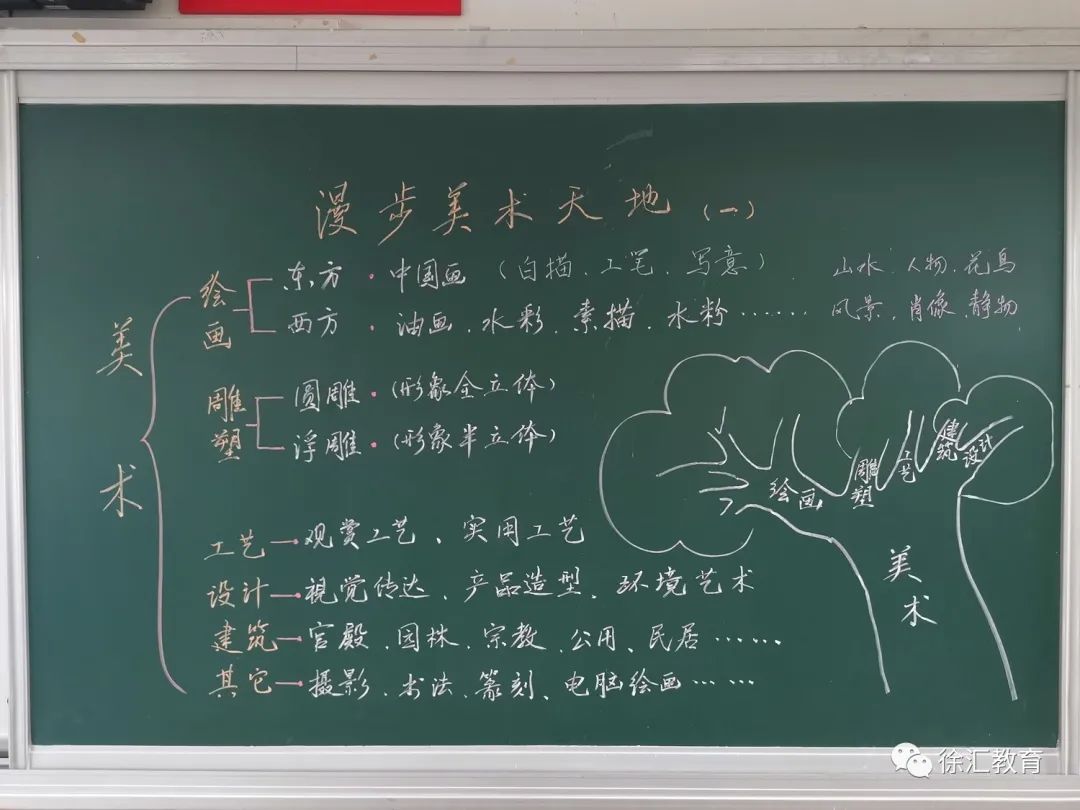 漫步美术天地（一）
美术
绘画
东方·中国画（白描、工笔、写意）、山水、人物、花鸟
西方·油画、水彩、素描、水粉…… 风景、肖像、静物
雕塑
圆雕·（形象全立体）
浮雕·（形象半立体）
工艺—观赏工艺、实用工艺
设计—視觉传达、产品造型、环境艺术
建筑—宫殿、园林、宗教、公用、民居……
其它—摄影、书法、篆刻、电脑绘画……
绘画
雕塑
工艺
建筑
设计
美术
徐汇教育